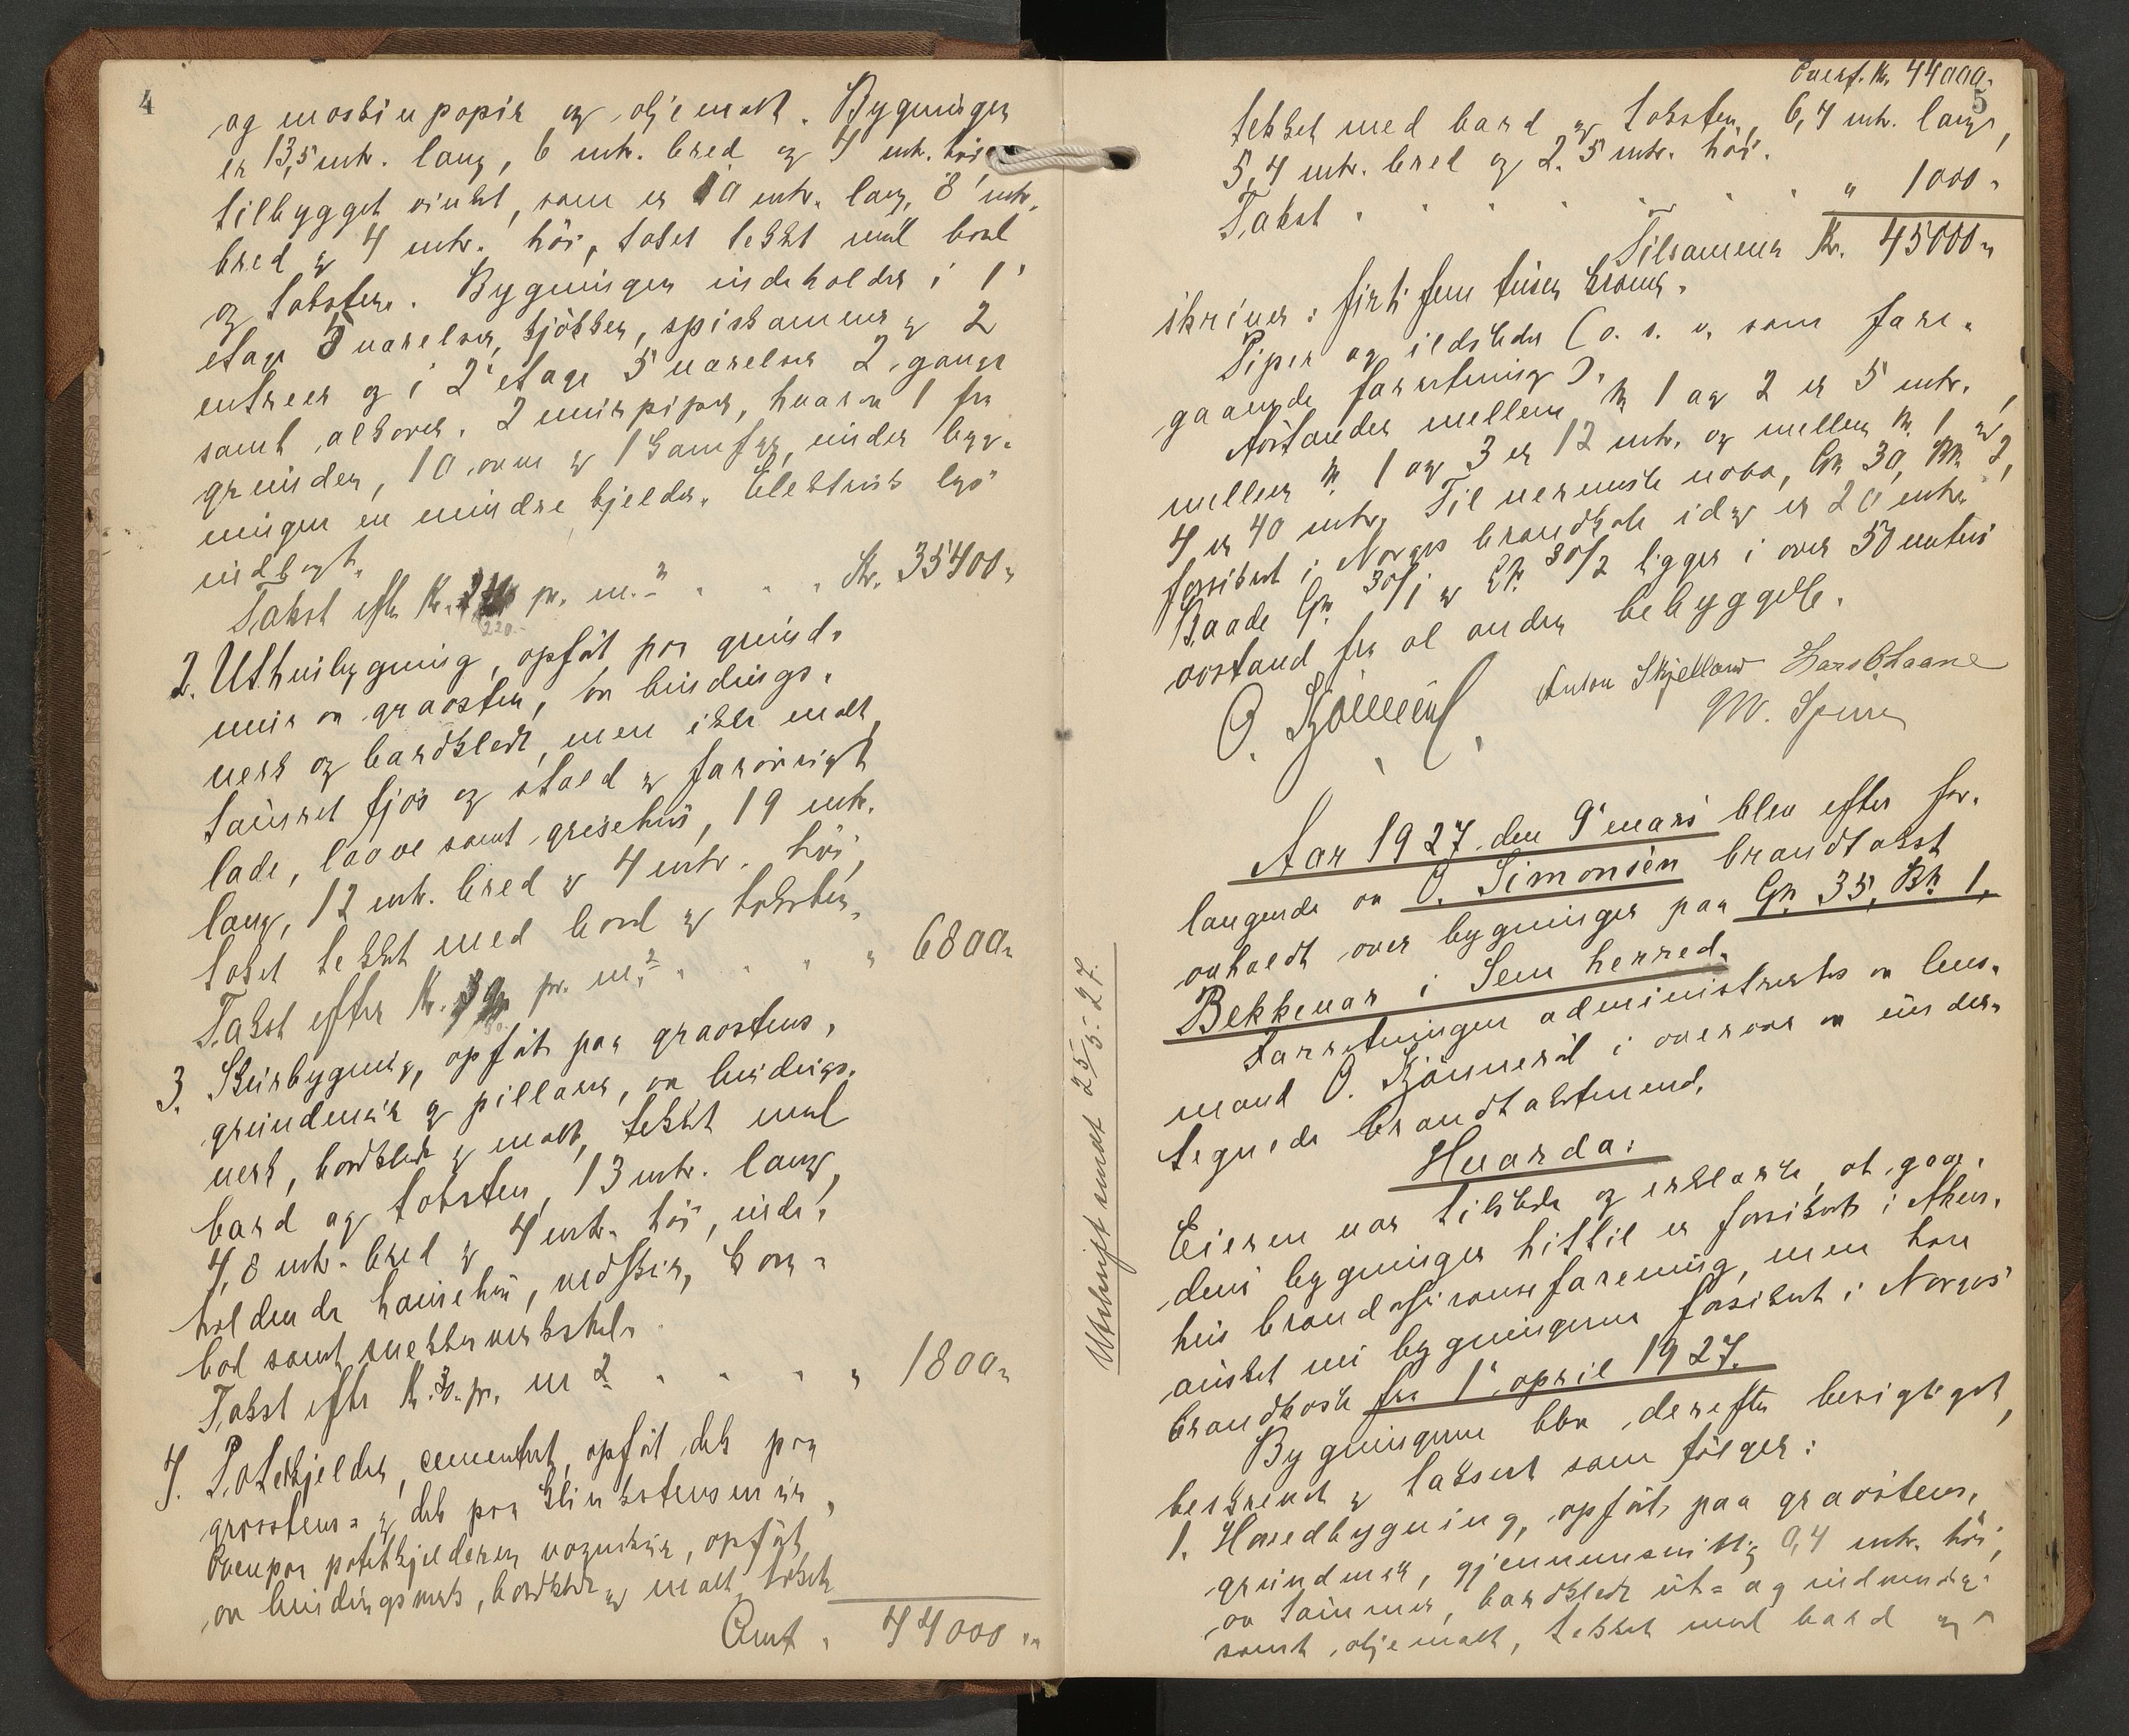 4
og maskinpapir og oljemalt. Bygningen
er 13,5 mtr. lang, 6 mtr. bred og 7 mtr. høi,
tilbygget vinkel, som er 10 mtr. lang, 8 mtr.
bred og 4 mtr. høi, taket tekket med bord
og taksten. Bygningen indeholder i 1'
etage 5 værelser, kjøkken, spiskammer og 2
entreer og i 2' etage 5 værelser 2 gange
samt alkover. 2 murpiper, hvorav 1 fra
grunden, 10 ovne og 1 komfyr, under byg-
ningen en mindre kjelder. Elektrisk lys
indlagt.
Takst efter Kr. pr. m.2 . . . Kr. 35400,
220.-
2. Uthusbygning, opført paa grund-
mur av graasten, av bindings-
verk og bordklædt, men ikke malt,
tømret fjøs og stald og forøvrigt
lade, laave samt grisehus, 19 mtr.
lang, 12 mtr. bred og 4 mtr. høi,
taket tekket med bord og taksten.
Takst efter Kr. pr. m.2 . . . " 6800,
3. Skurbygning, opført paa graastens-
grundmur og pillarer, av bindings-
verk, bordklædt og malt, tekket med
bord og taksten, 13 mtr. lang,
4,8 mtr. bred og 4 mtr. høi, inde-
holdende hønsehus, vedskur,
bod samt snekkerverksted.
Takst efter Kr. 30. pr. m2 . . . " 1800,
4. Potetkjelder, cementert, opført dels paa
graastens- og dels paa klinkstensmur,
Ovenpaa potetkjelderen vognskur, opført
av bindingsverk, bordklædt og malt, taket
Omf. 44000,-
Overf. Kr. 44000,
5
tekket med bord og taksten, 6,4 mtr. lang,
5,4 mtr. bred og 2,5 mtr. høi.
Takst . . . . . . . " 1000,
Tilsammen Kr. 45000,
skriver: firti fem tusen kroner.
Piper og ildsteder (o. s. v. som fore-
gaaende forretning).
Avstanden mellem Nr 1 og 2 er 5 mtr.,
mellem Nr. 1 og 3 er 12 mtr. og mellem Nr. 1 og
4 er 40 mtr. Til nærmeste nabo, Gr. 30, Br. 2,
forsikret i Norges brandkasse idag er 20 mtr.
Baade Gr. 30/1 og Gr. 30/2 ligger i over 50 meters
avstand fra al anden bebyggelse.
Anton Skjelland Lars Haane
M. Spurre
Aar 1927 den 9' mars blev efter for-
langende av O. Simonsen brandtakst
avholdt over bygninger paa Gr. 35, Br. 1,
Bekkevar i Sem herred.
Forretningen administrertes av lens-
mand O. Kjønnerød i overvær av under-
tegnede brandtakstmænd.
Hvorda:
Eieren var tilstede og erklærte, at gaar-
dens bygninger hittil er forsikret i Akers-
hus brandassuranseforening, men han
ønsket nu bygningerne forsikret i Norges
brandkasse fra 1' april 1927.
Bygningerne blev derefter besigtiget,
beskrevet og taksert som følger:
1. Hovedbygning, opført paa graastens-
grundmur, gjennemsnittlig 0,4 mtr. høi,
av tømmer, bordklædt ut- og indvendig
samt oljemalt, tekket med bord og
Utskrift sendt 25/5-27.